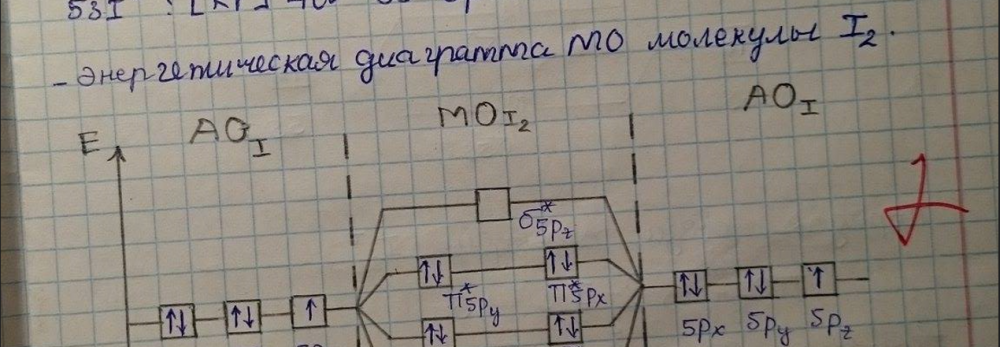 53I : [Kr]
- энергетическая диаграмма МО молекулы I₂.
E AO_I MO_I₂ AO_I
σ*5pz
↑↓ ↑↓
π*5py π*5px
↑↓ ↑↓ ↑ ↑↓ ↑↓ ↑
↑↓ ↑↓ 5px 5py 5pz